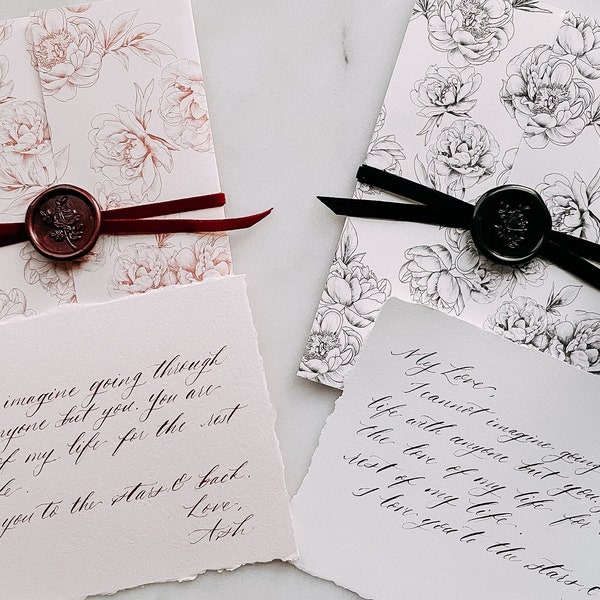 imagine going through
anyone but you. you are
of my life for the rest
you to the stars & back.
Love,
Ash
My Love,
I cannot imagine going
life with anyone but you.
the love of my life for
rest of my life.
I love you to the stars